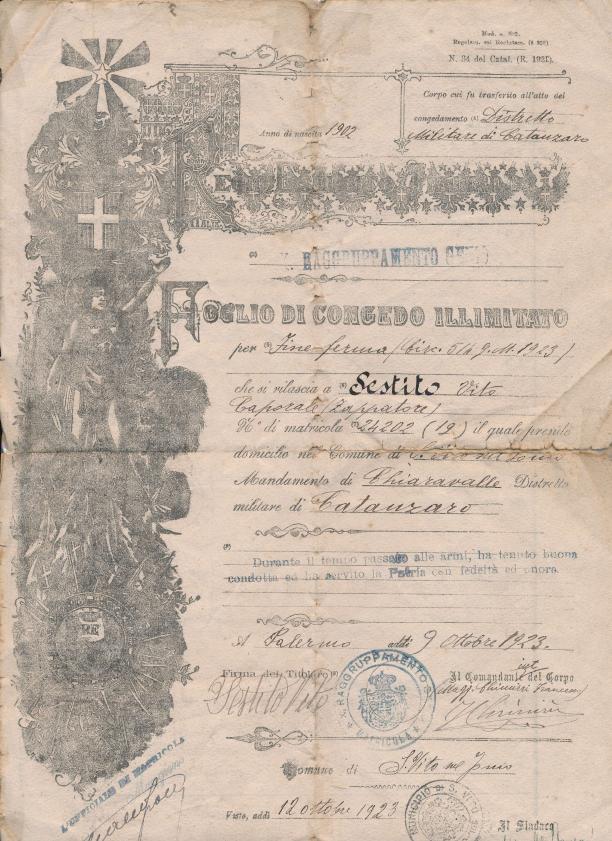 Mod. n.
Regolam. sul Reclutam. (§
N. 34 del Catal. (R. 1921).
Corpo cui fu trasferito all'atto del
congedamento (A) Distretto
Militare di Catanzaro
Anno di nascita 1902
RAGGRUPPAMENTO GENIO
FOGLIO DI CONGEDO ILLIMITATO
per Fine ferma (Circ. 514 G. M. 1923)
che si rilascia a Sestito Vito
Caporale (Zappatore)
N° di matricola 24202 (19) il quale prende
domicilio nel Comune di
Mandamento di Chiaravalle Distretto
militare di Catanzaro
Durante il tempo passato alle armi, ha tenuto buona
condotta ed ha servito la Patria con fedeltà ed onore.
A Salerno addì 9 Ottobre 1923.
Firma del Titolare
Il Comandante del Corpo
Sestito Vito
RAGGRUPPAMENTO
MATRICOLA
RE
Comune di S. Vito
L'UFFICIALE DI MATRICOLA
Visto, addì 12 ottobre 1923
MUNICIPIO DI S. VITO
Il Sindaco